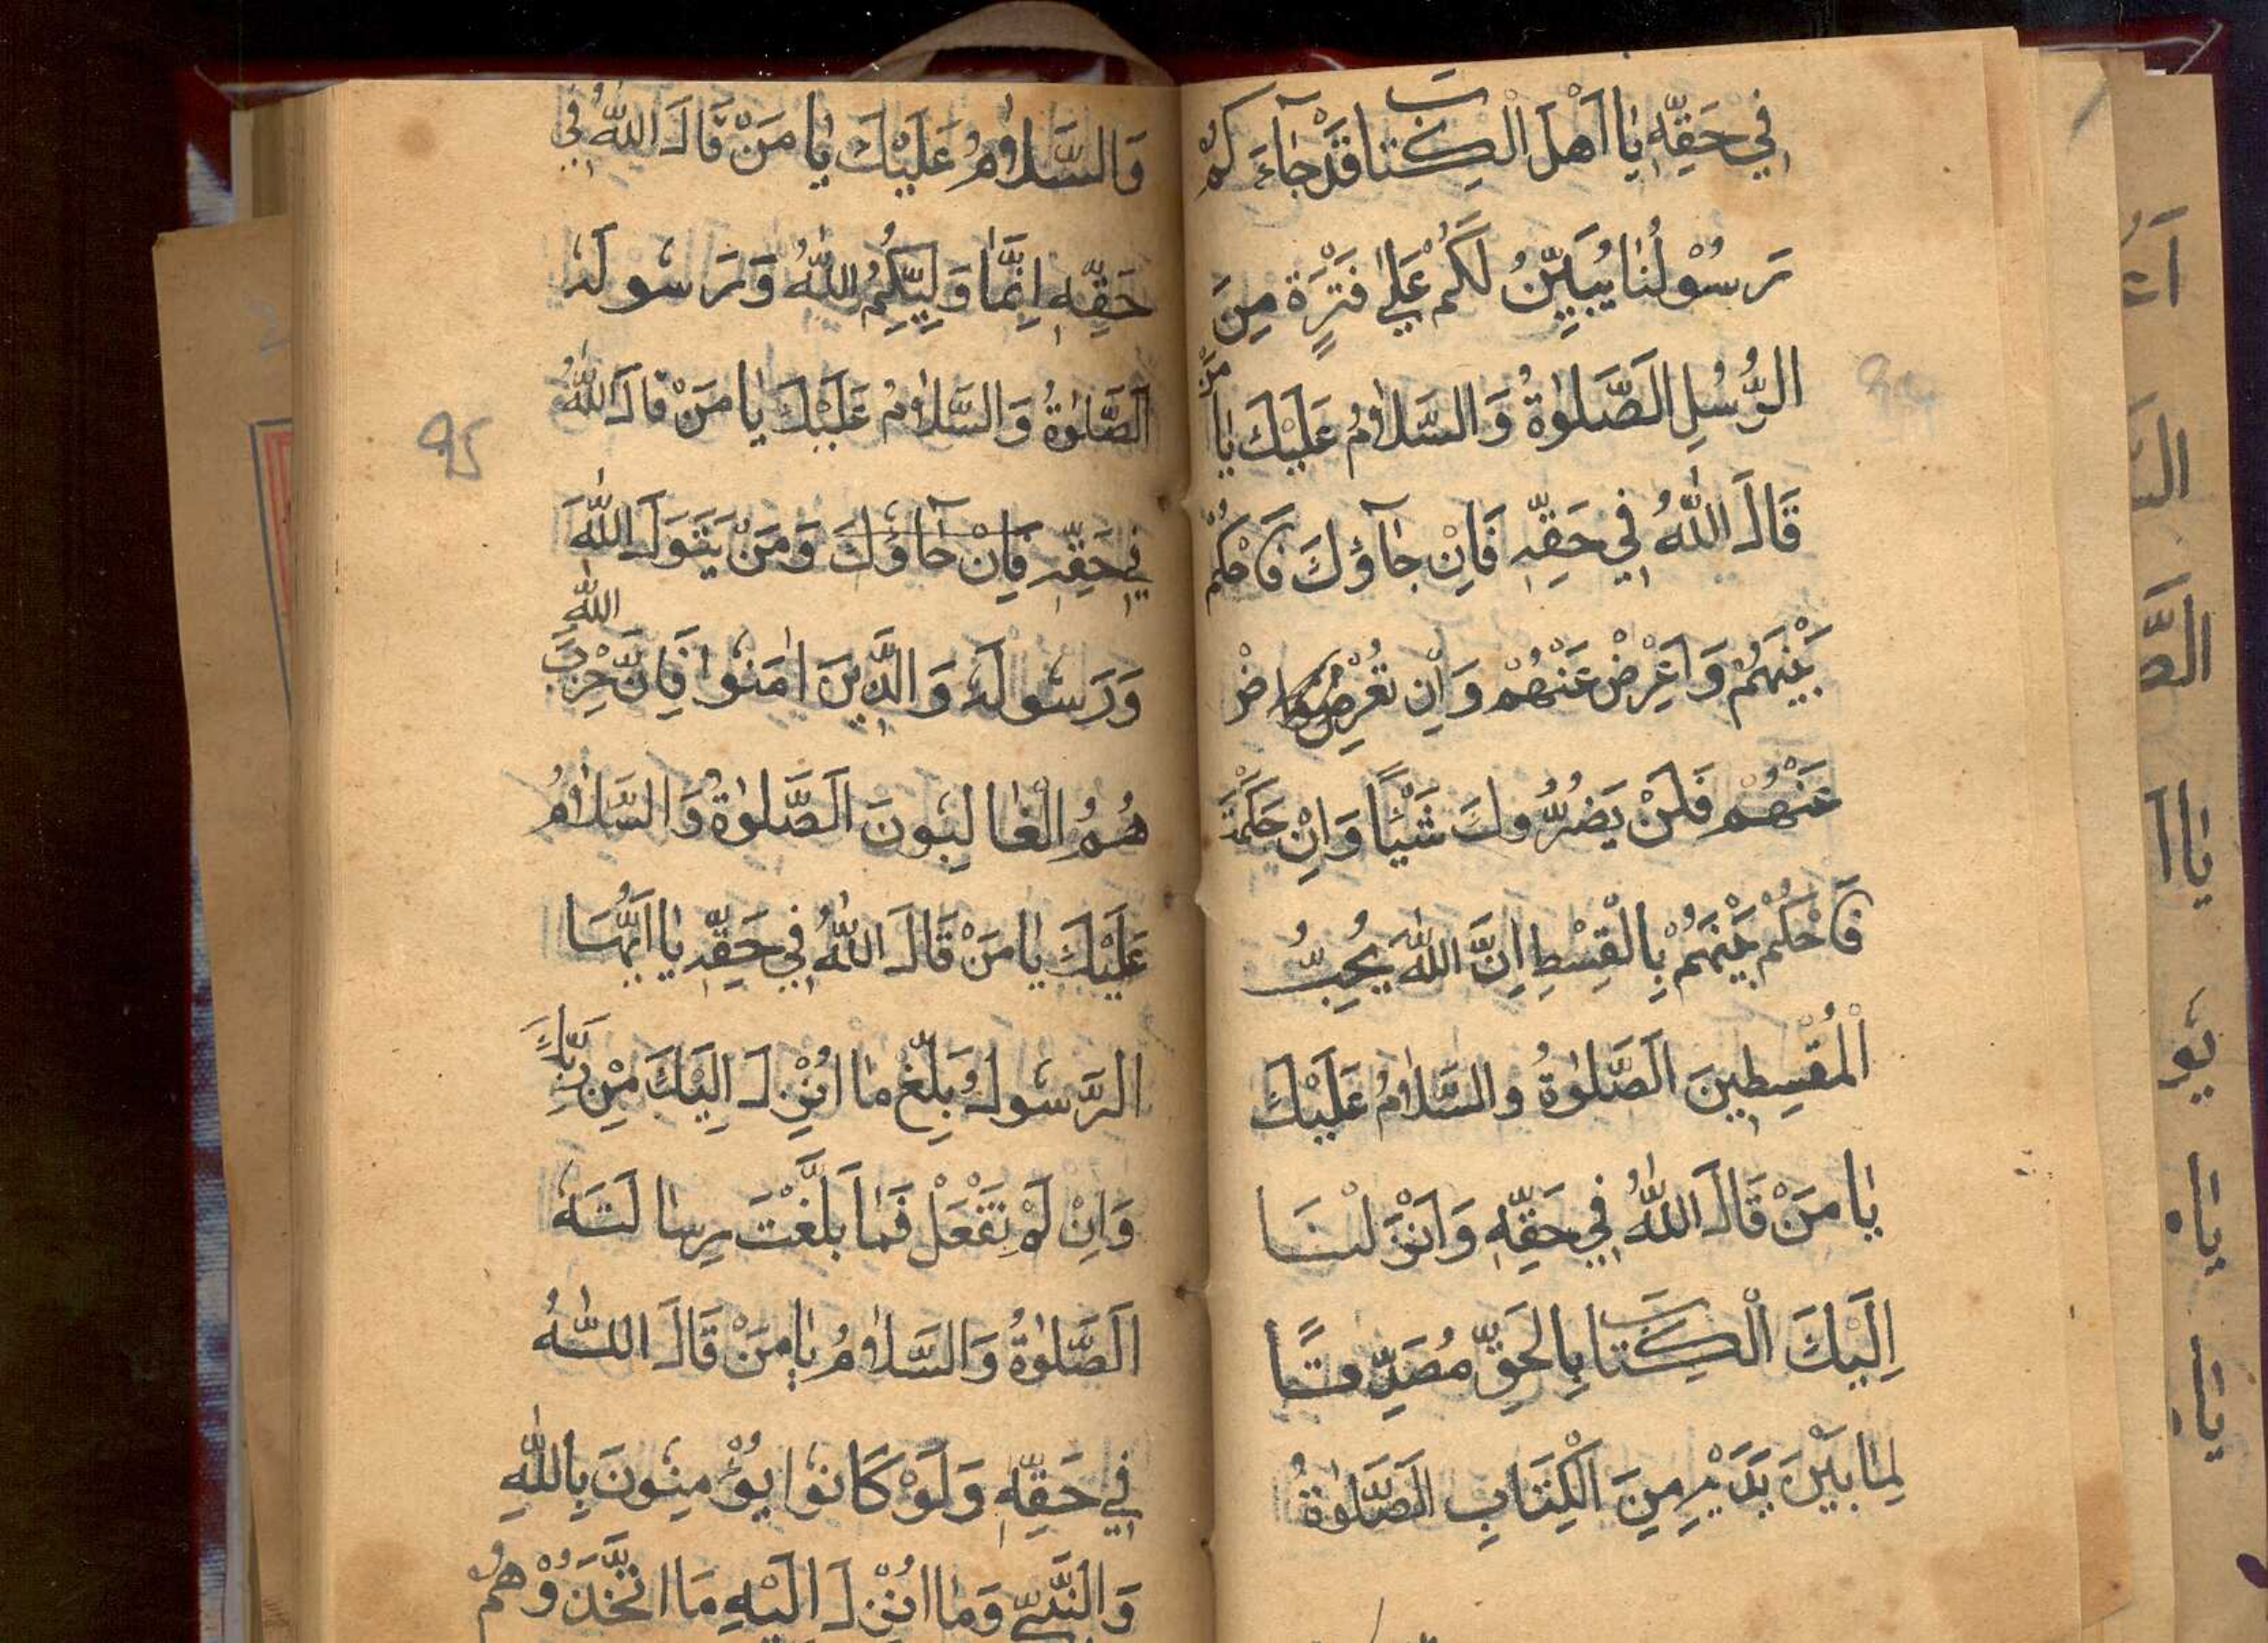 فِي حَقِّهِ يَا اَهْلَ الْكِتَابَ قَدْ جَآءَ كُمْ
رَسُوْلُنَا يُبَيِّنُ لَكُمْ عَلٰي فَتْرَةٍ مِنَ
الرُّسُلِ اَلصَّلٰوةُ وَالسَّلَامُ عَلَيْكَ يَا مَنْ
قَالَ اللّٰهُ فِي حَقِّهِ فَاِنْ جَآؤُكَ فَاحْكُمْ
بَيْنَهُمْ وَاَعْرِضْ عَنْهُمْ وَاِنْ تُعْرِضْ
عَنْهُمْ فَلَنْ يَضُرُّوكَ شَيْئًا وَاِنْ حَكَمْتَ
فَاحْكُمْ بَيْنَهُمْ بِالْقِسْطِ اِنَّ اللّٰهَ يُحِبُّ
الْمُقْسِطِينَ اَلصَّلٰوةُ وَالسَّلَامُ عَلَيْكَ
يَا مَنْ قَالَ اللّٰهُ فِي حَقِّهِ وَاَنْزَلْنَا
اِلَيْكَ الْكِتَابَ بِالْحَقِّ مُصَدِّقًا
لِمَا بَيْنَ يَدَيْهِ مِنَ الْكِتَابِ اَلصَّلٰوةُ
وَالسَّلَامُ عَلَيْكَ يَا مَنْ قَالَ اللّٰهُ فِي
حَقِّهِ اِنَّمَا وَلِيُّكُمُ اللّٰهُ وَرَسُولُهُ
اَلصَّلٰوةُ وَالسَّلَامُ عَلَيْكَ يَا مَنْ قَالَ اللّٰهُ
فِي حَقِّهِ فَاِنْ جَآؤُكَ وَمَنْ يَتَوَلَّ اللّٰهَ
وَرَسُولَهُ وَالَّذِينَ اٰمَنُوا فَاِنَّ حِزْبَ اللّٰهِ
هُمُ الْغَالِبُونَ اَلصَّلٰوةُ وَالسَّلَامُ
عَلَيْكَ يَا مَنْ قَالَ اللّٰهُ فِي حَقِّهِ يَا اَيُّهَا
الرَّسُولُ بَلِّغْ مَا اُنْزِلَ اِلَيْكَ مِنْ رَبِّكَ
وَاِنْ لَمْ تَفْعَلْ فَمَا بَلَّغْتَ رِسَالَتَهُ
اَلصَّلٰوةُ وَالسَّلَامُ يَا مَنْ قَالَ اللّٰهُ
فِي حَقِّهِ وَلَوْ كَانُوا يُؤْمِنُونَ بِاللّٰهِ
وَالنَّبِيِّ وَمَا اُنْزِلَ اِلَيْهِ مَا اتَّخَذُوْهُمْ
95